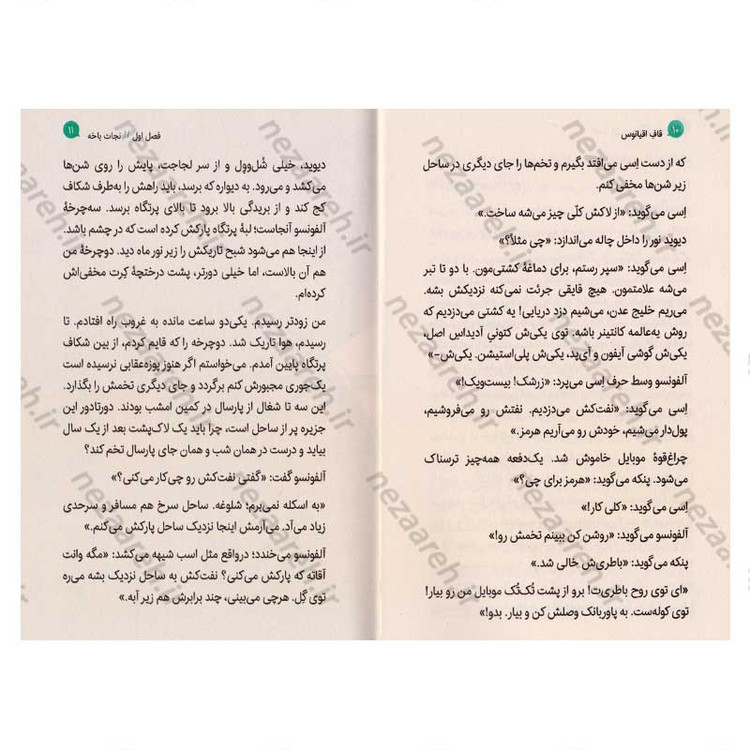 ۱۰
قاف اقیانوس
که از دست اِسی می‌افتد بگیرم و تخم‌ها را جای دیگری در ساحل
زیر شن‌ها مخفی کنم.
اِسی می‌گوید: «از لاکش کلّی چیز می‌شه ساخت.»
دیوید نور را داخل چاله می‌اندازد: «چی مثلاً؟»
اِسی می‌گوید: «سپر رستم، برای دماغهٔ کشتی‌مون. با دو تا تبر
می‌شه علامتمون. هیچ قایقی جرئت نمی‌کنه نزدیکش بشه.
می‌ریم خلیج عدن، می‌شیم دزد دریایی! یه کشتی می‌دزدیم که
روش یه‌عالمه کانتینر باشه. توی یکی‌ش کتونیِ آدیداسِ اصل،
یکی‌ش گوشی آیفون و آی‌پد، یکی‌ش پلی‌استیشن. یکی‌ش-»
آلفونسو وسط حرف اِسی می‌پرد: «زرشک! بیست‌ویک!»
اِسی می‌گوید: «نفت‌کش می‌دزدیم. نفتش رو می‌فروشیم،
پول‌دار می‌شیم، خودش رو می‌آریم هرمز.»
چراغ‌قوهٔ موبایل خاموش شد. یک‌دفعه همه‌چیز ترسناک
می‌شود. پنکه می‌گوید: «هرمز برای چی؟»
اِسی می‌گوید: «کلی کار!»
آلفونسو می‌گوید: «روشن کن ببینم تخمش رو!»
پنکه می‌گوید: «باطری‌ش خالی شد.»
«ای توی روح باطری‌ت! برو از پشت تُک‌تُک موبایل من رو بیار!
توی کوله‌ست. به پاوربانک وصلش کن و بیار. بدو!»
فصل اول // نجات باخه
۱۱
دیوید، خیلی شُل‌و‌وِل و از سر لجاجت، پایش را روی شن‌ها
می‌کشد و می‌رود. به دیواره که برسد، باید راهش را به‌طرف شکاف
کج کند و از بریدگی بالا برود تا بالای پرتگاه برسد. سه‌چرخهٔ
آلفونسو آنجاست؛ لبهٔ پرتگاه پارکش کرده است که در چشم باشد.
از اینجا هم می‌شود شبح تاریکش را زیر نور ماه دید. دوچرخهٔ من
هم آن بالاست، اما خیلی دورتر، پشت درختچهٔ کِرت مخفی‌اش
کرده‌ام.
من زودتر رسیدم. یکی‌دو ساعت مانده به غروب راه افتادم. تا
رسیدم، هوا تاریک شد. دوچرخه را که قایم کردم، از بین شکاف
پرتگاه پایین آمدم. می‌خواستم اگر هنوز پوزه‌عقابی نرسیده است
یک‌جوری مجبورش کنم برگردد و جای دیگری تخمش را بگذارد.
این سه تا شغال از پارسال در کمین امشب بودند. دورتادور این
جزیره پر از ساحل است، چرا باید یک لاک‌پشت بعد از یک سال
بیاید و درست در همان شب و همان جای پارسال تخم کند؟
آلفونسو گفت: «گفتی نفت‌کش رو چی‌کار می‌کنی؟»
«به اسکله نمی‌برم؛ شلوغه. ساحل سرخ هم مسافر و سرحدی
زیاد می‌آد. می‌آرمش اینجا نزدیک ساحل پارکش می‌کنم.»
آلفونسو می‌خندد؛ درواقع مثل اسب شیهه می‌کشد: «مگه وانت
آقاته که پارکش می‌کنی؟ نفت‌کش به ساحل نزدیک بشه می‌ره
توی گِل. هرچی می‌بینی، چند برابرش هم زیر آبه.»
nezaareh.ir